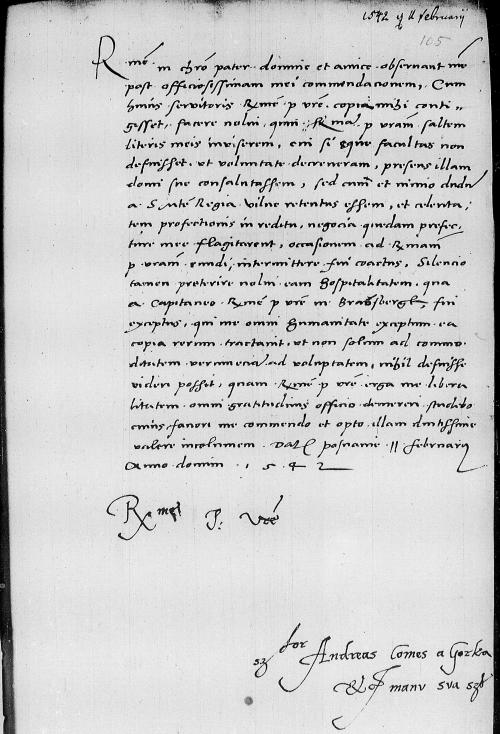 1542 11 februarii
105
Rme in chro pater domine et amice observant me
post officiosissimam mei commendacionem, Cum
huius servitoris Rme p vre copia mihi conti=
gisset, facere nolui, quin Rma p vram saltem
literis meis inviserem, cui si que facultas non
defuisset, ut voluntate decreveram, presens illam
domi sue consalutassem, sed cum et nimio diutius
a S Mte Regia Vilne retentus essem, et celerita;
tem profectionis in reditu, negocia quedam prefec,
ture mee flagitarent, occasionem ad Rmam
p vram eundi, intermittere fui coactus, Silencio
tamen preterire nolui eam hospitalitatem, qua
a Capitaneo Rme p vre in Brawsbergk, fui
exceptus, qui me omni humanitate exceptum ea
copia rerum tractavit, ut non solum ad commo
ditatem verum eciam ad voluptatem, nihil defuisse
videri posset, quam Rme p vre erga me libera
litatem omni gratitudinis officio demereri studebo
cuius favori me commendo et opto illam diutissime
valere incolumem. Dat posnanie 11 februarii
Anno domini 1542
Rme P: Vre
Andreas Comes a Gorka
manu sua